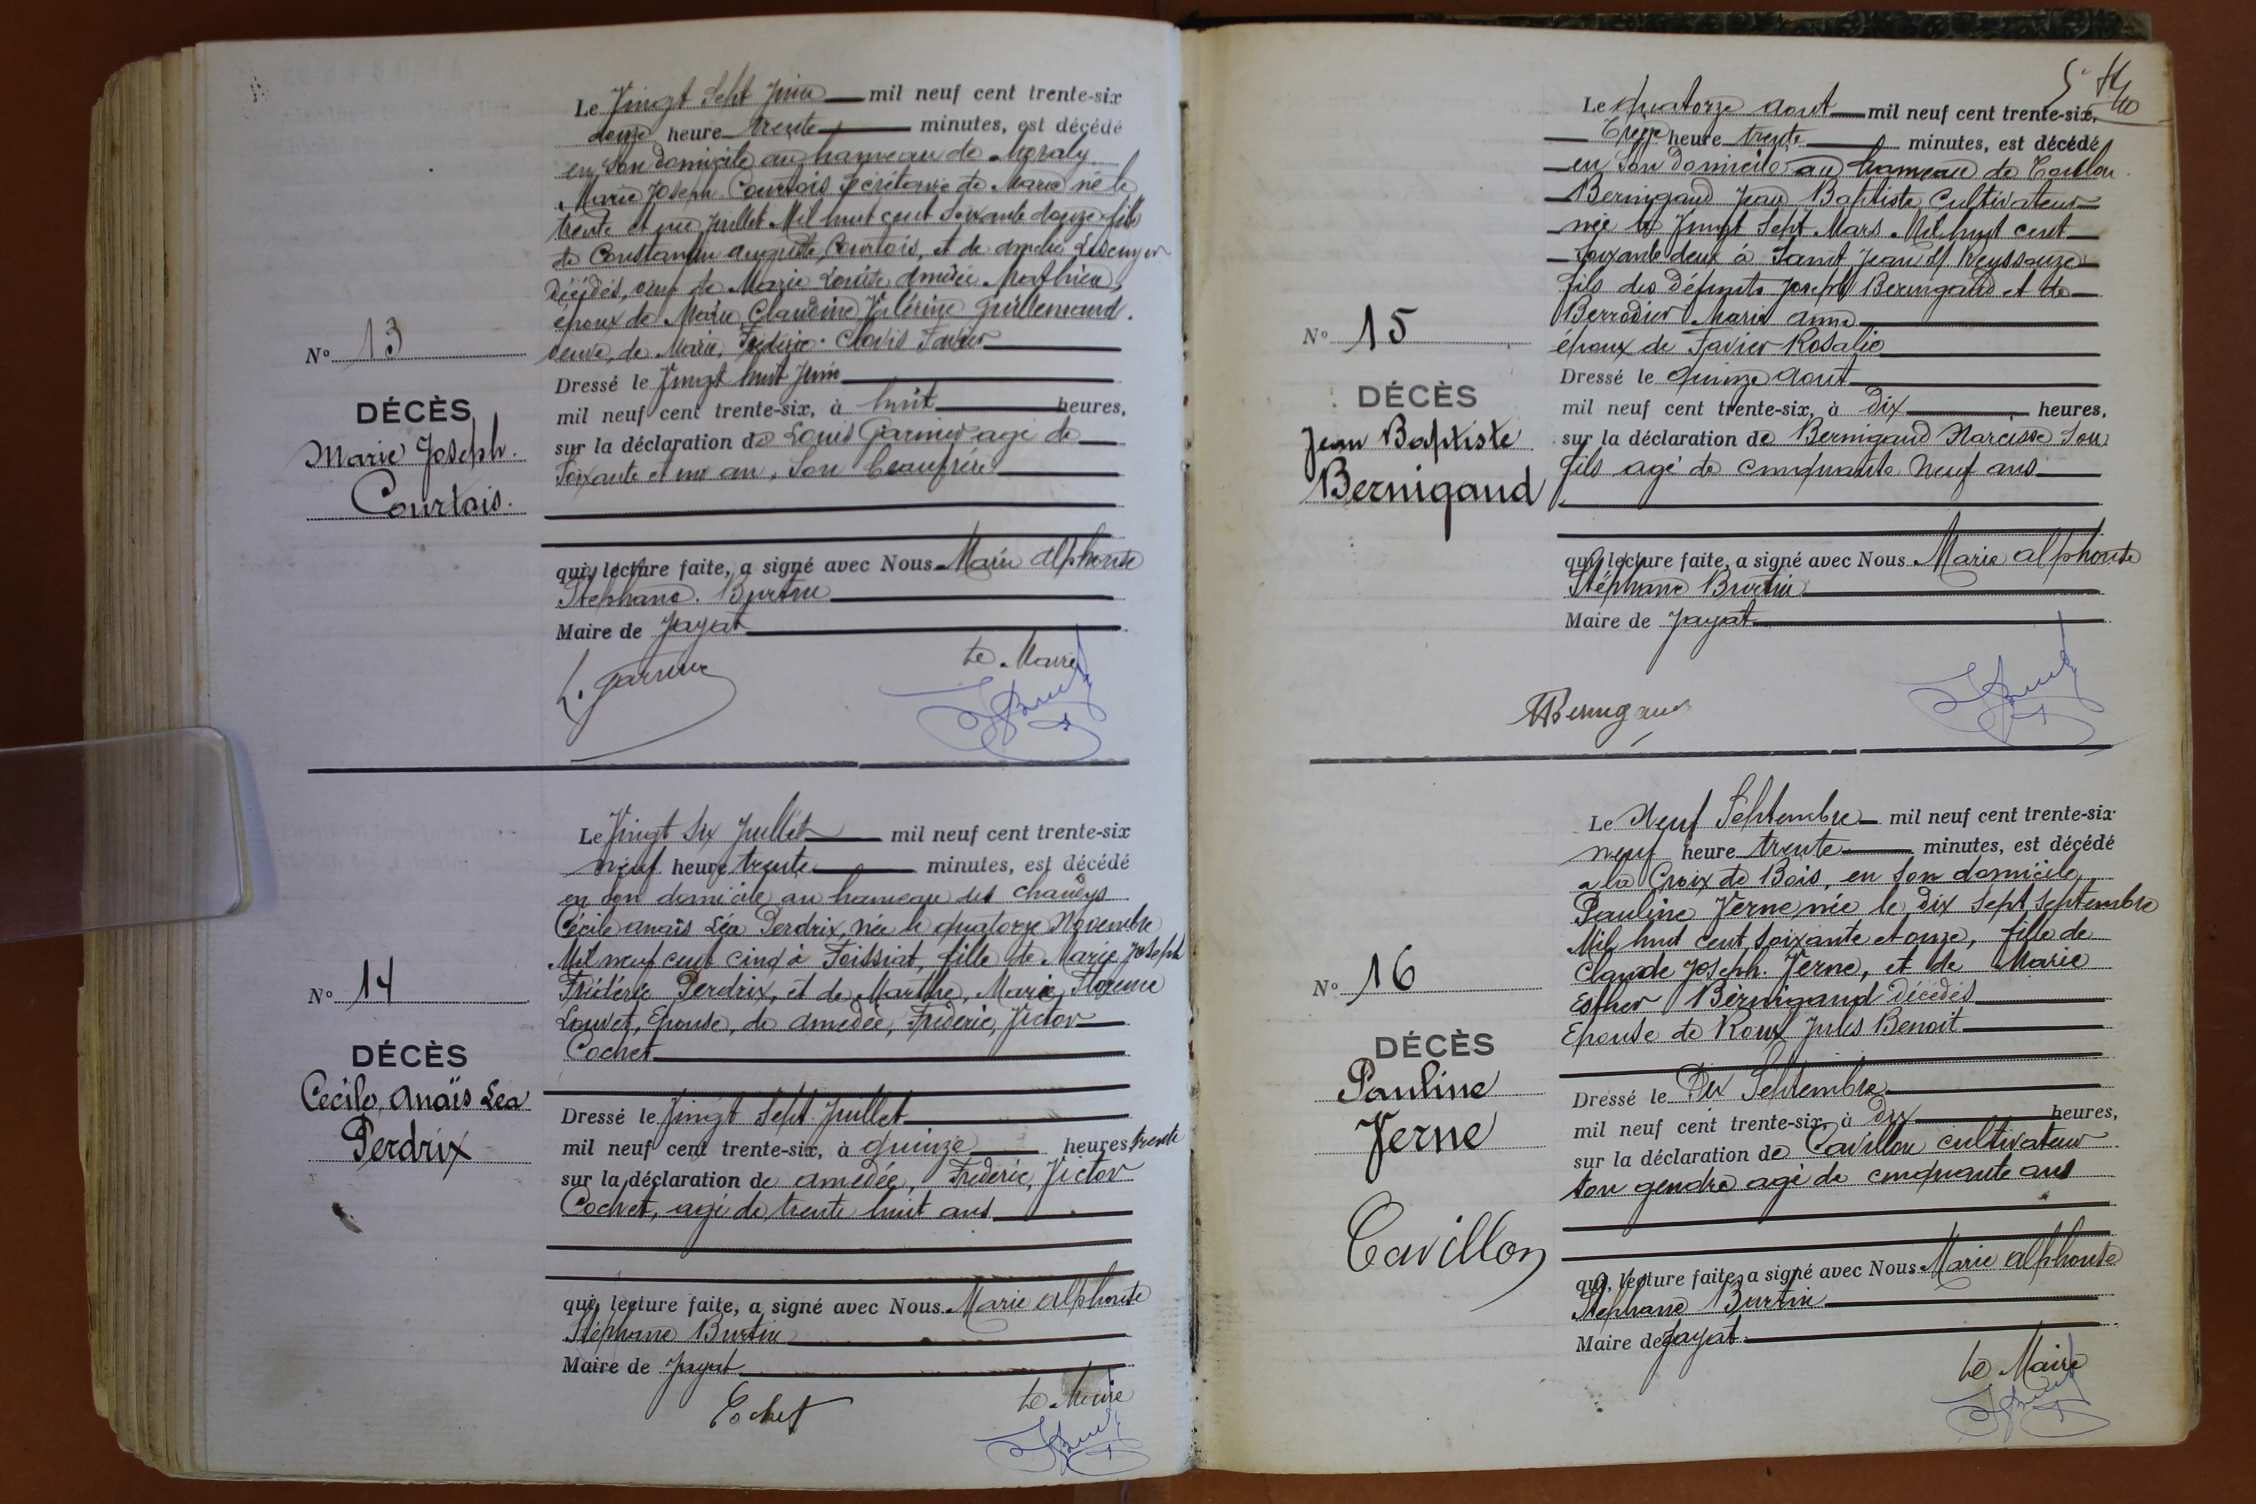 Le Vingt Sept Juin mil neuf cent trente-six
douze heure trente minutes, est décédé
en son domicile au hameau de
Marie Joseph Courtois Secrétaire de Mairie né le
trente et un juillet Mil huit cent soixante douze fils
de Constantin auguste, Courtois, et de
Décédés, veuf de Marie Louise Amédée Mathieu,
époux de Marie Claudine Valérine Guillemaud.
veuve, de Marie, Frédéric. Clovis Favier
N° 13
DÉCÈS
Marie Joseph.
Courtois.
Dressé le Vingt huit Juin
mil neuf cent trente-six, à huit heures,
sur la déclaration de Louis Garnier agé de
Soixante et un an, Son beaufrère
qui, lecture faite, a signé avec Nous Marie alphonse
Stéphane. Burtin
Maire de Jayat
L. Garnier
Le Maire
Le Vingt Six Juillet mil neuf cent trente-six
neuf heure trente minutes, est décédé
en son domicile au hameau des
Cécile anaïs Léa Perdrix, née le quatorze Novembre
Mil neuf cent cinq à Foissiat, fille de Marie Joseph
Frédéric Perdrix, et de Marthe, Marie, Florence
Louvet, Epouse, de amédée, Frédéric, Victor
Cochet
N° 14
DÉCÈS
Cecile, Anaïs Lea
Perdrix
Dressé le Vingt Sept Juillet
mil neuf cent trente-six, à quinze heures trente
sur la déclaration de amédée, Frédéric, Victor
Cochet, agé de trente huit ans
qui, lecture faite, a signé avec Nous Marie alphonse
Stéphane Burtin
Maire de Jayat
Cochet
Le Maire
Le quatorze aout mil neuf cent trente-six,
Treize heure trente minutes, est décédé
en son domicile au hameau de Toulon
Bernigaud Jean Baptiste Cultivateur
née le Vingt Sept Mars Mil huit cent
Soixante deux à Saint Jean s/ Reyssouze
fils des défunts Joseph Bernigaud et de
Berrodier Marie anne
époux de Favier Rosalie
N° 15
DÉCÈS
Jean Baptiste
Bernigaud
Dressé le quinze aout
mil neuf cent trente-six, à Dix heures,
sur la déclaration de Bernigaud Narcisse Son
fils agé de cinquante Neuf ans
qui, lecture faite, a signé avec Nous Marie alphonse
Stéphane Burtin
Maire de Jayat
Bernigaud
Le Neuf Septembre mil neuf cent trente-six
neuf heure trente minutes, est décédé
a la Croix de Bois, en Son domicile,
Pauline Verne née le dix sept septembre
Mil huit cent, Soixante et onze, fille de
Claude Joseph. Verne, et de Marie
Esther Bernigaud Décédés
Epouse de Roux Jules Benoit
N° 16
DÉCÈS
Pauline
Verne
Dressé le Dix Septembre
mil neuf cent trente-six, à dix heures,
sur la déclaration de Cavillon cultivateur
son gendre agé de cinquante ans
Cavillon
qui, lecture faite, a signé avec Nous Marie alphonse
Stéphane Burtin
Maire de Jayat
Le Maire